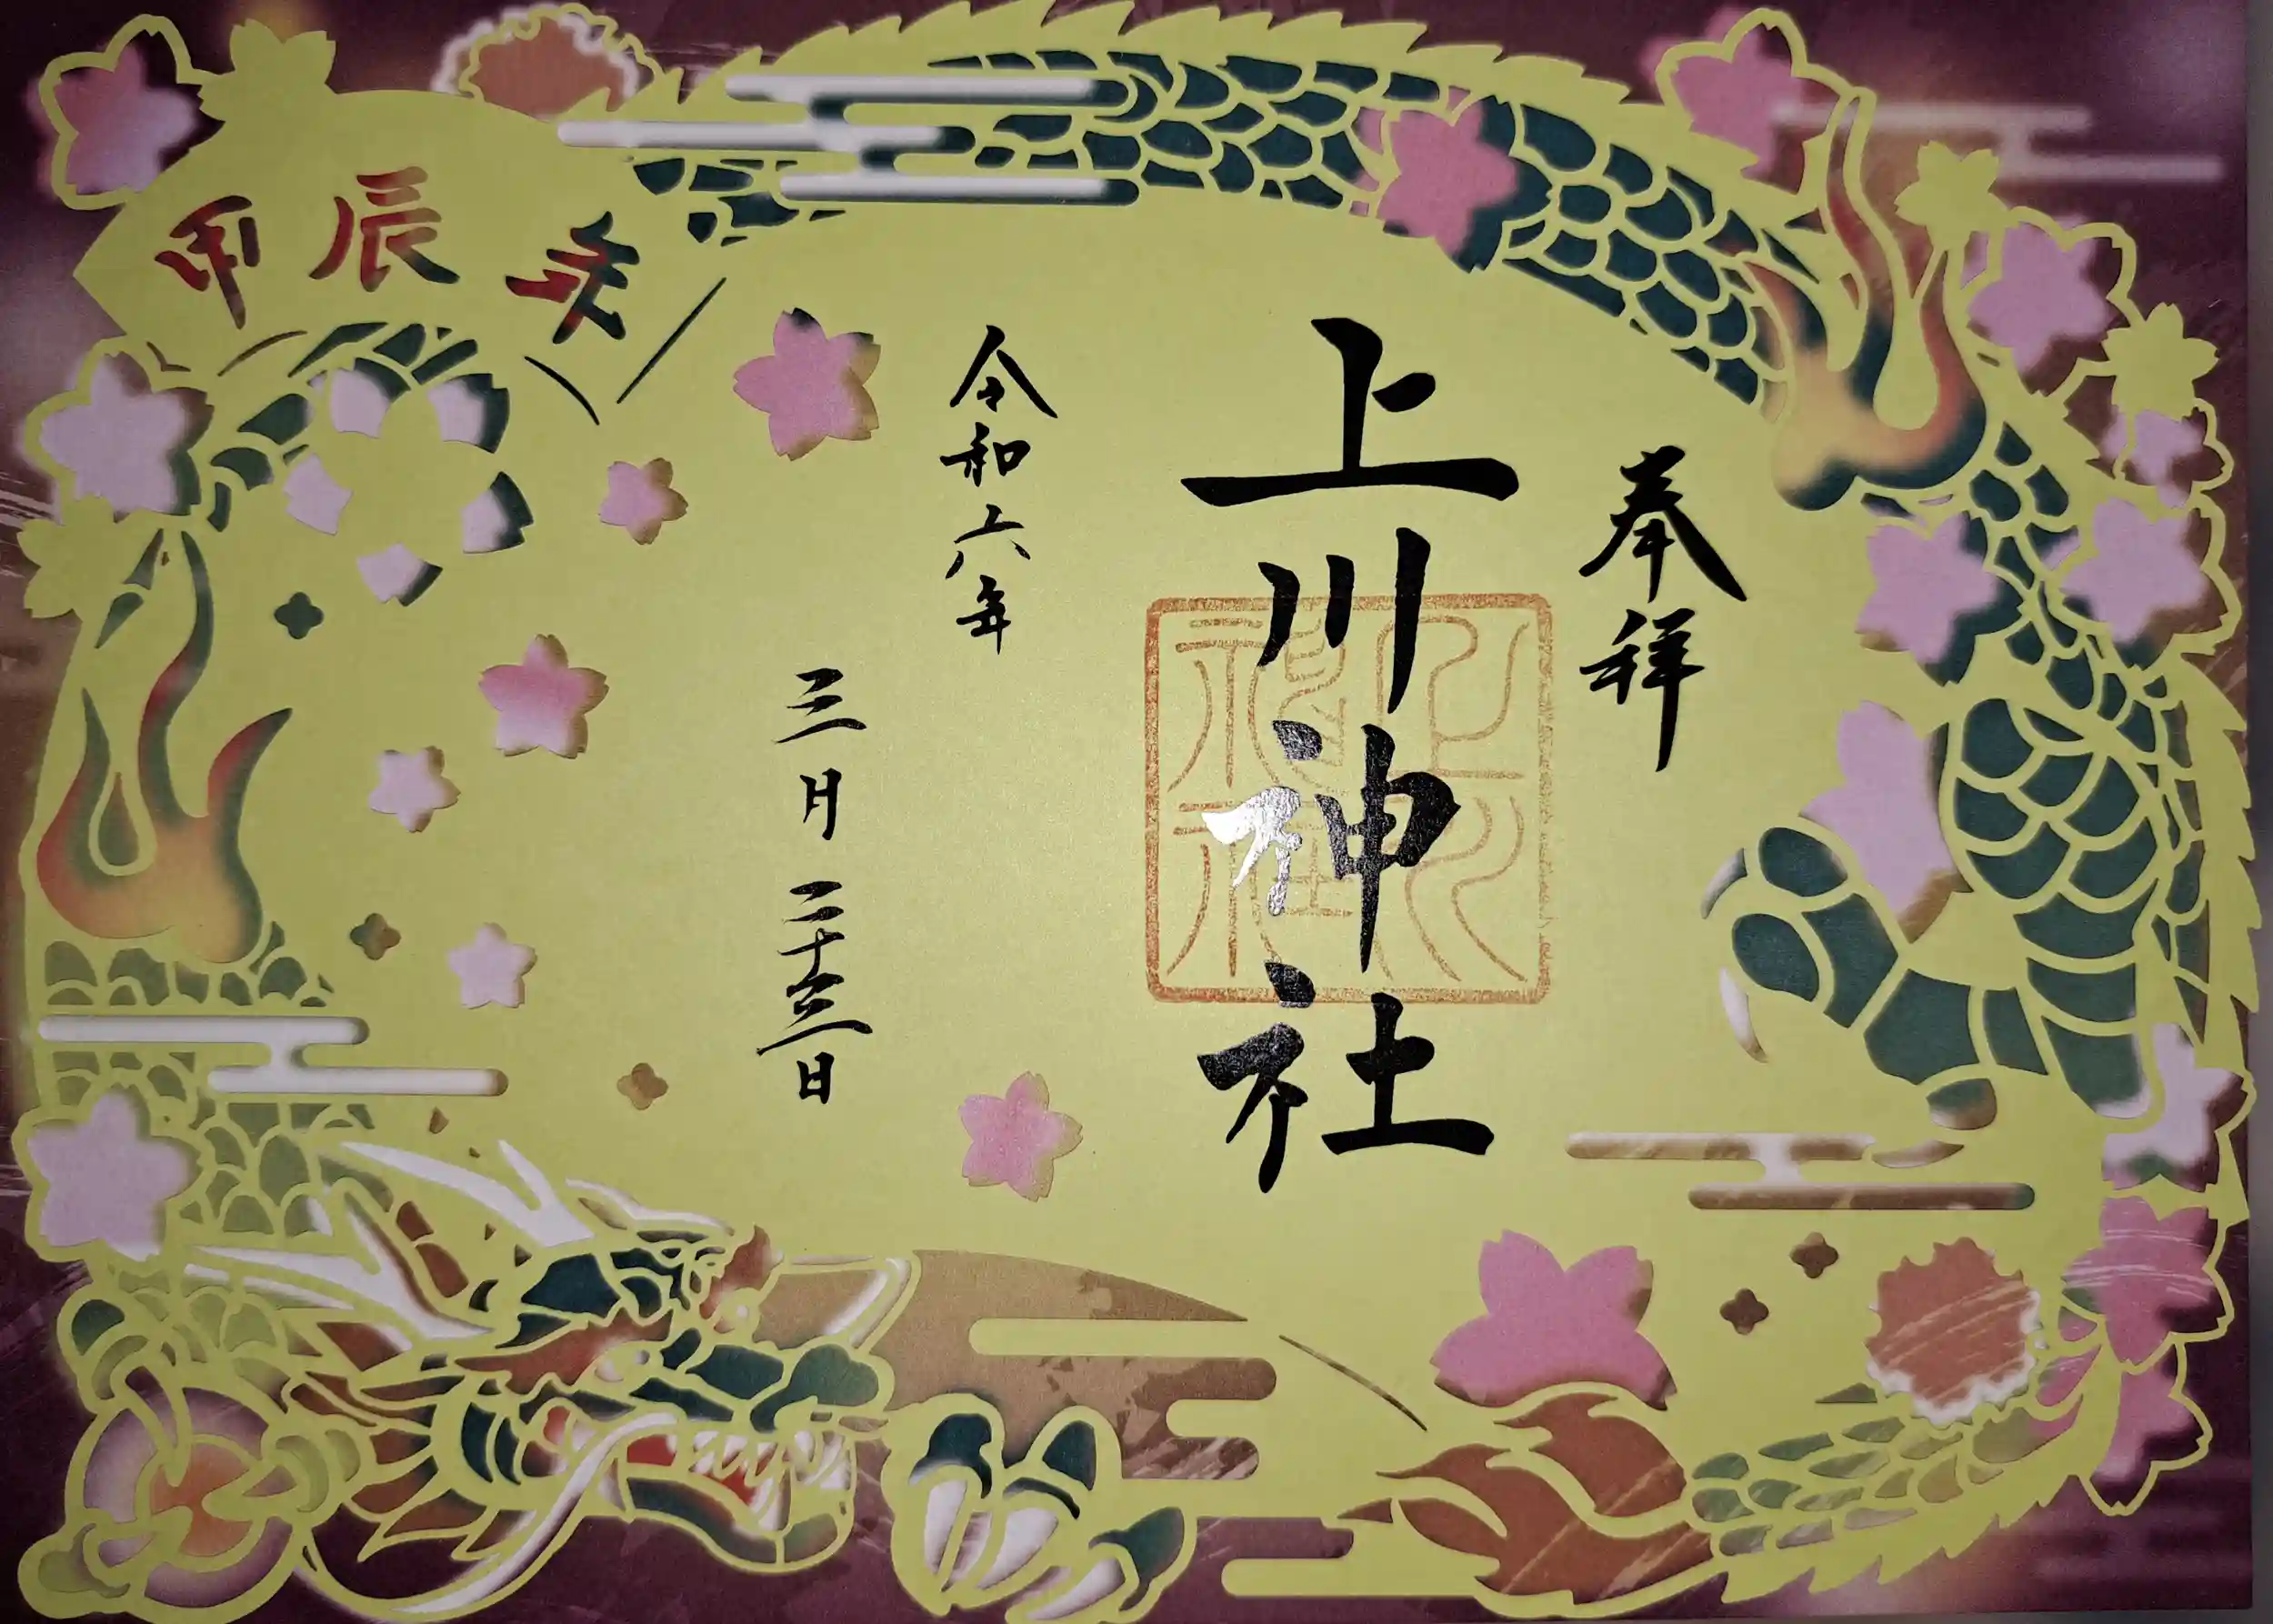 奉拝
上川神社
上川
神社
令和六年
三月二十三日
甲辰